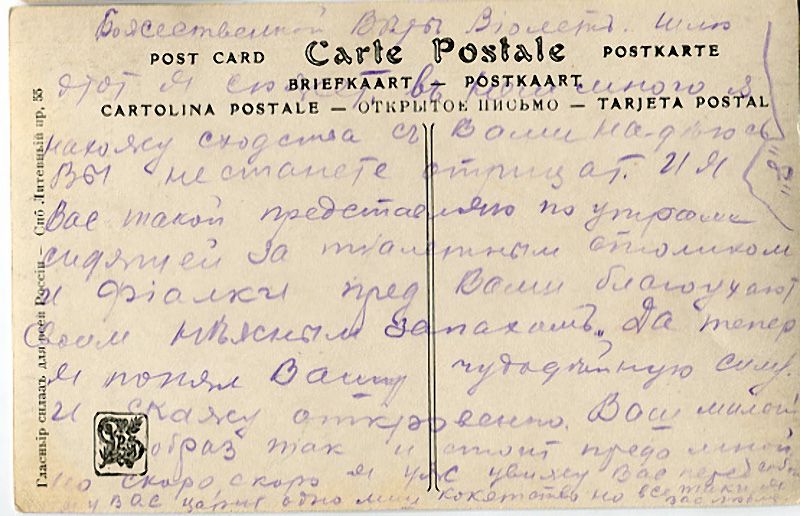 Божественной Виолетъ. шлю
POST CARD Carte Postale POSTKARTE
этот я въ много я
BRIEFKAART — POSTKAART
CARTOLINA POSTALE — ОТКРЫТОЕ ПИСЬМО — TARJETA POSTAL
нахожу сходства съ Вами на-дѣюсь
Вы не станете отрицат. И я
Вас такой представляю по утрами
сидящей за туалетным столиком
и фіалки пред Вами благоухают
своим нѣжным запахомъ. Да тепер
я понял Вашу чудодѣйную силу.
и скажу откровенно. Ваш милой
образ так и стоит предо мной
но скоро скоро я уж увижу Вас перед собой
и у Вас царит одно лиш кокетство но все таки я
Вас люблю
Гласный складъ для всей Россіи — Спб Литейный пр, 55